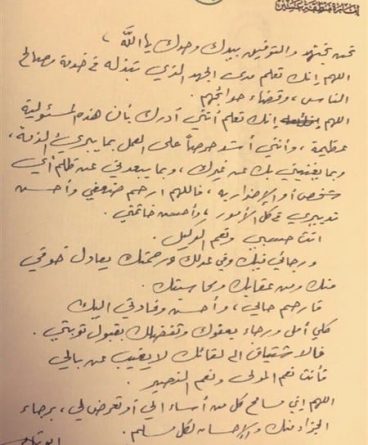 نحن نجتهد والتوفيق بيدك وحدك يا الله ،
اللهم إنك تعلم مدى الجهد الذي نبذله في خدمة ومصالح
الناس ، وقضاء حوائجهم .
اللهم إنك تعلم أنني أدرك بأن هذه المسئولية
عظيمة ، وأنني أشد حرصاً على العمل بما يبرئ الذمة ،
وبما يغنيني بك عن غيرك ، وبما يبعدني عن ظلم أي
شخص أو الإضرار به ، فاللهم ارحم ضعفي وأحسن
تدبيري في كل الأمور ، وأحسن خاتمتي .
أنت حسبي ونعم الوكيل .
ورجائي فيك وفي عدلك ورحمتك يعادل خوفي
منك ومن عقابك ومحاسبتك .
فارحم حالي ، وأحسن وفادتي إليك
كلي أمل ورجاء بعفوك وتفضلك بقبول توبتي .
فالاشتياق إلى لقائك لا يغيب عن بالي
فأنت نعم المولى ونعم النصير .
اللهم إني مسامح كل من أساء إلي أو تعرض لي ، برجاء
الجزاء منك والإحسان لكل مسلم .